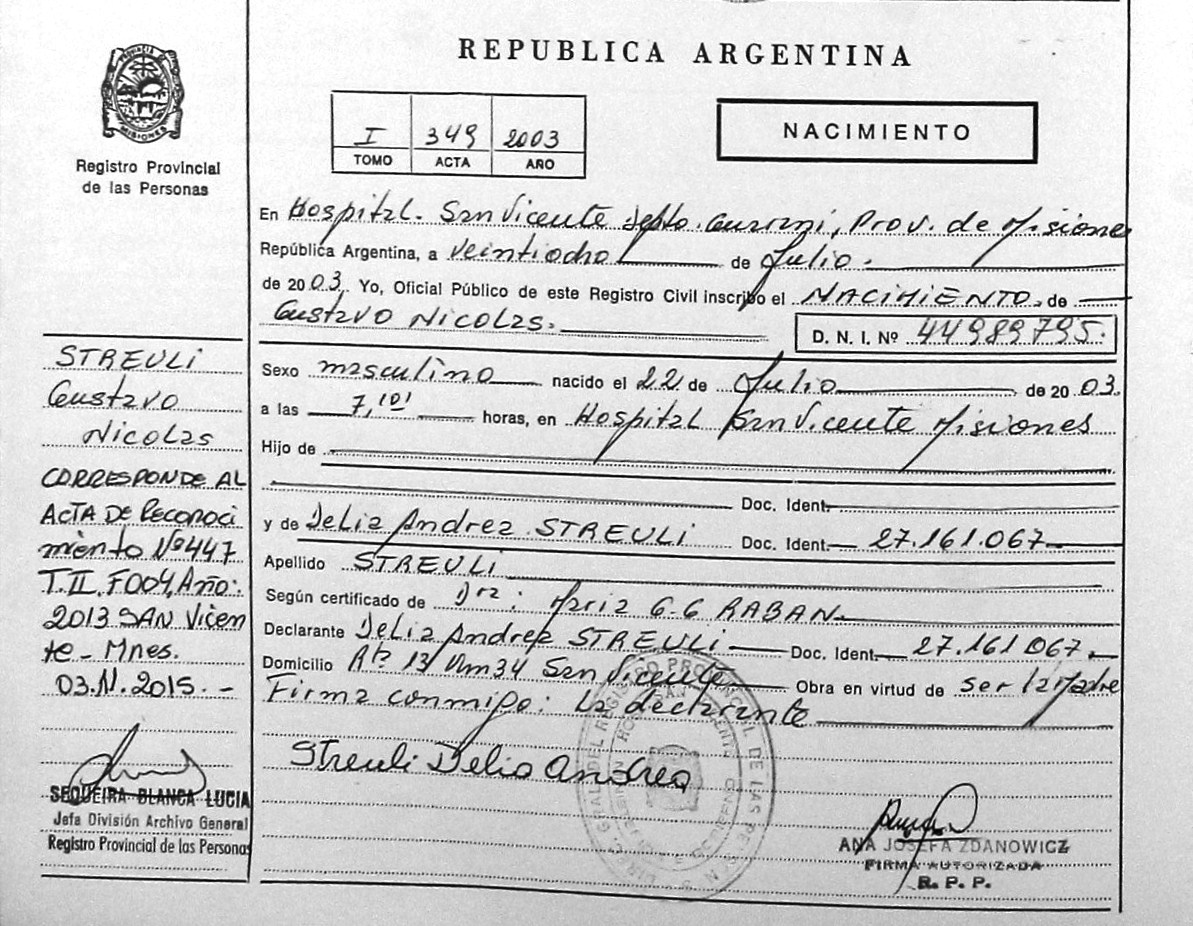 REPUBLICA ARGENTINA
PROVINCIA DE
MISIONES
Registro Provincial
de las Personas
I 349 2003
TOMO ACTA AÑO
NACIMIENTO
En Hospital. San Vicente Depto. Guaraní, Prov. de Misiones
República Argentina, a veintiocho de Julio.
de 2003. Yo, Oficial Público de este Registro Civil inscribo el NACIMIENTO. de
Gustavo Nicolas.
D. N. I. Nº 44989795.
Sexo masculino nacido el 22 de Julio de 2003.
a las 7,10' horas, en Hospital San Vicente Misiones
Hijo de
Doc. Ident.
y de Delia Andrea STREULI Doc. Ident. 27.161.067
Apellido STREULI
Según certificado de Dra: Maria G.G RABAN
Declarante Delia Andrea STREULI Doc. Ident. 27.161.067.
Domicilio Km 34 San Vicente Obra en virtud de ser la Madre
Firma conmigo: La declarante
Streuli Delia Andrea
STREULI
Gustavo
Nicolas
CORRESPONDE AL
ACTA DE Reconoci
miento Nº 447
T.II. F004, Año:
2013 SAN Vicen
te - Mnes.
03.N.2015. -
SEQUEIRA BLANCA LUCIA
Jefa División Archivo General
Registro Provincial de las Personas
ANA JOSEFA ZDANOWICZ
FIRMA AUTORIZADA
R. P. P.